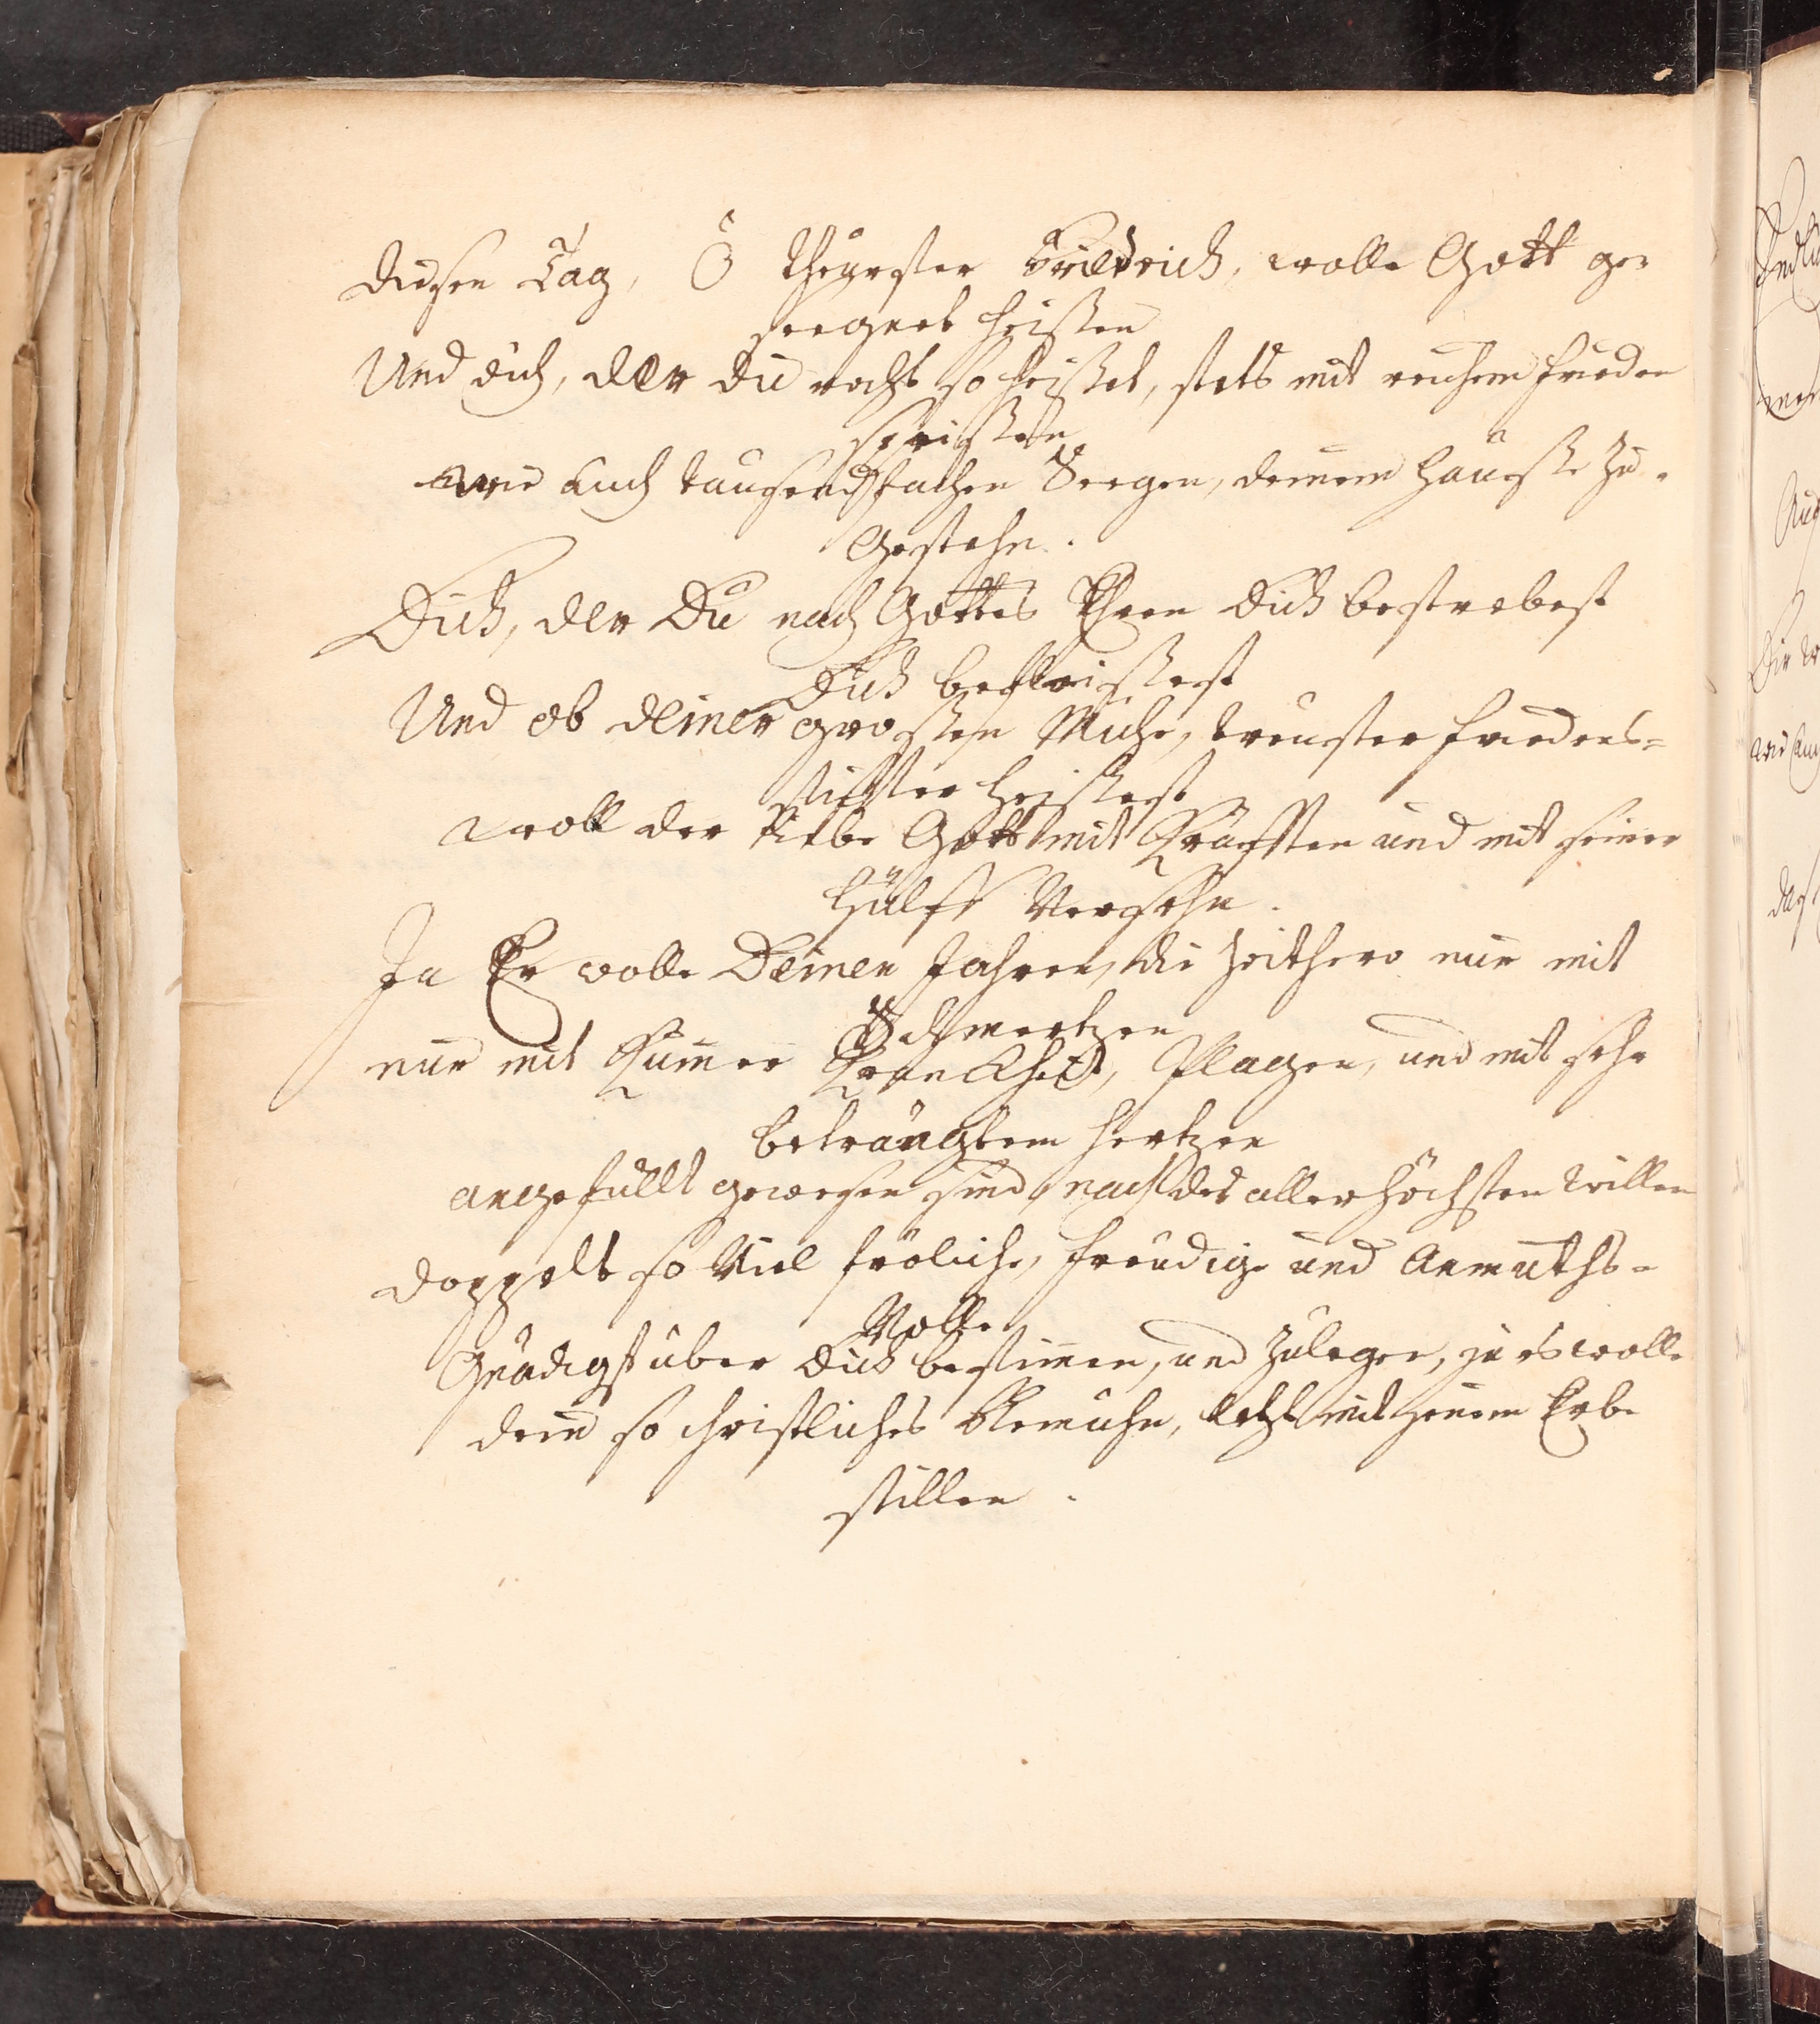 diesen Tag, O theurster Friedrich, wolle Gott ge-
seegnet heissen
Und dich, der du recht so heissest, stets mit reichem frieden
speissen
und auch tausendfachen Seegen, deinem hausse zu-
Gestehn.
Dich, der Du nach Gottes Ehren Dich bestrebest
Dich befleissest
Und ob deiner grossen Mühe, treuster friedens=
stiffter heissest
woll der liebe Gott mit Kräfften und mit seiner
hülff Versehn.
Ja Er wolle Deinen Jahren, die zeithero nur mit
Schmertzen
nur mit Kumer Kranckheit, Plagen, und mit sehr
beträngtem hertzen
angefüllt gewesen sind, nach des allerhöchsten willen
doppelt so Viel fröliche, freudige und Anmuths-
Volle
Gnädigst über Dich bestimen, und zulegen, ja es wolle
dein so christliches Bemühn, letzt mit jenem Erbe
stillen.